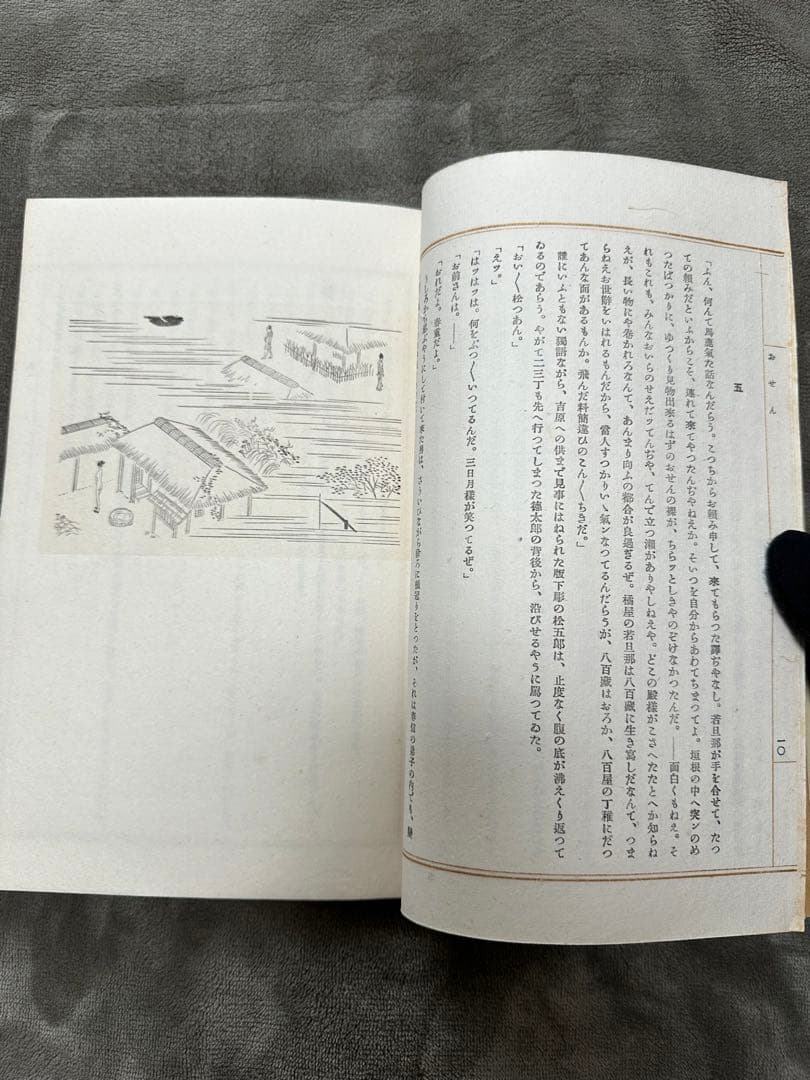 おせん
一〇
五
「ふん、何んて馬鹿氣た話なんだらう。こつちからお頼み申して、來てもらつた譯ぢやなし。若旦那が手を合せて、たつ
ての頼みだといふからこそ、連れて來てやつたんぢやねえか。そいつを自分からあわてちまつてよ。垣根の中へ突ンのめ
つたばつかりに、ゆつくり見物出來るはずのおせんの裸が、ちらッとしきやのぞけなかつたんだ。――面白くもねえ。そ
れもこれも、みんなおいらのせえだッてんぢや、てんで立つ瀬がありやしねえや。どこの殿樣がこさへたたとへか知らね
えが、長い物にや卷かれろなんて、あんまり向ふの都合が良過ぎるぜ。橘屋の若旦那は八百藏に生き寫しだなんて、つま
らねえお世辭をいはれるもんだから、當人すつかりいゝ氣ンなつてるんだらうが、八百藏はおろか、八百屋の丁稚にだつ
てあんな面があるもんか。飛んだ料簡違ひのこん〳〵ちきだ。」
誰にいふともない獨語ながら、吉原への供まで見事にはねられた版下彫の松五郎は、止度なく腹の底が沸えくり返つて
ゐるのであらう。やがて二三丁も先へ行つてしまつた德太郎の背後から、浴びせるやうに罵つてゐた。
「おい〳〵松つあん。」
「えッ。」
「はッはッは。何をぶつ〳〵いつてるんだ。三日月樣が笑つてるぜ。」
「お前さんは。――」
「おれだよ。春重だよ。」
うしろから忍ぶやうにして付いて來た男は、さういひながら徐ろに頰冠りをとつたが、それは春信の弟子の内でも、